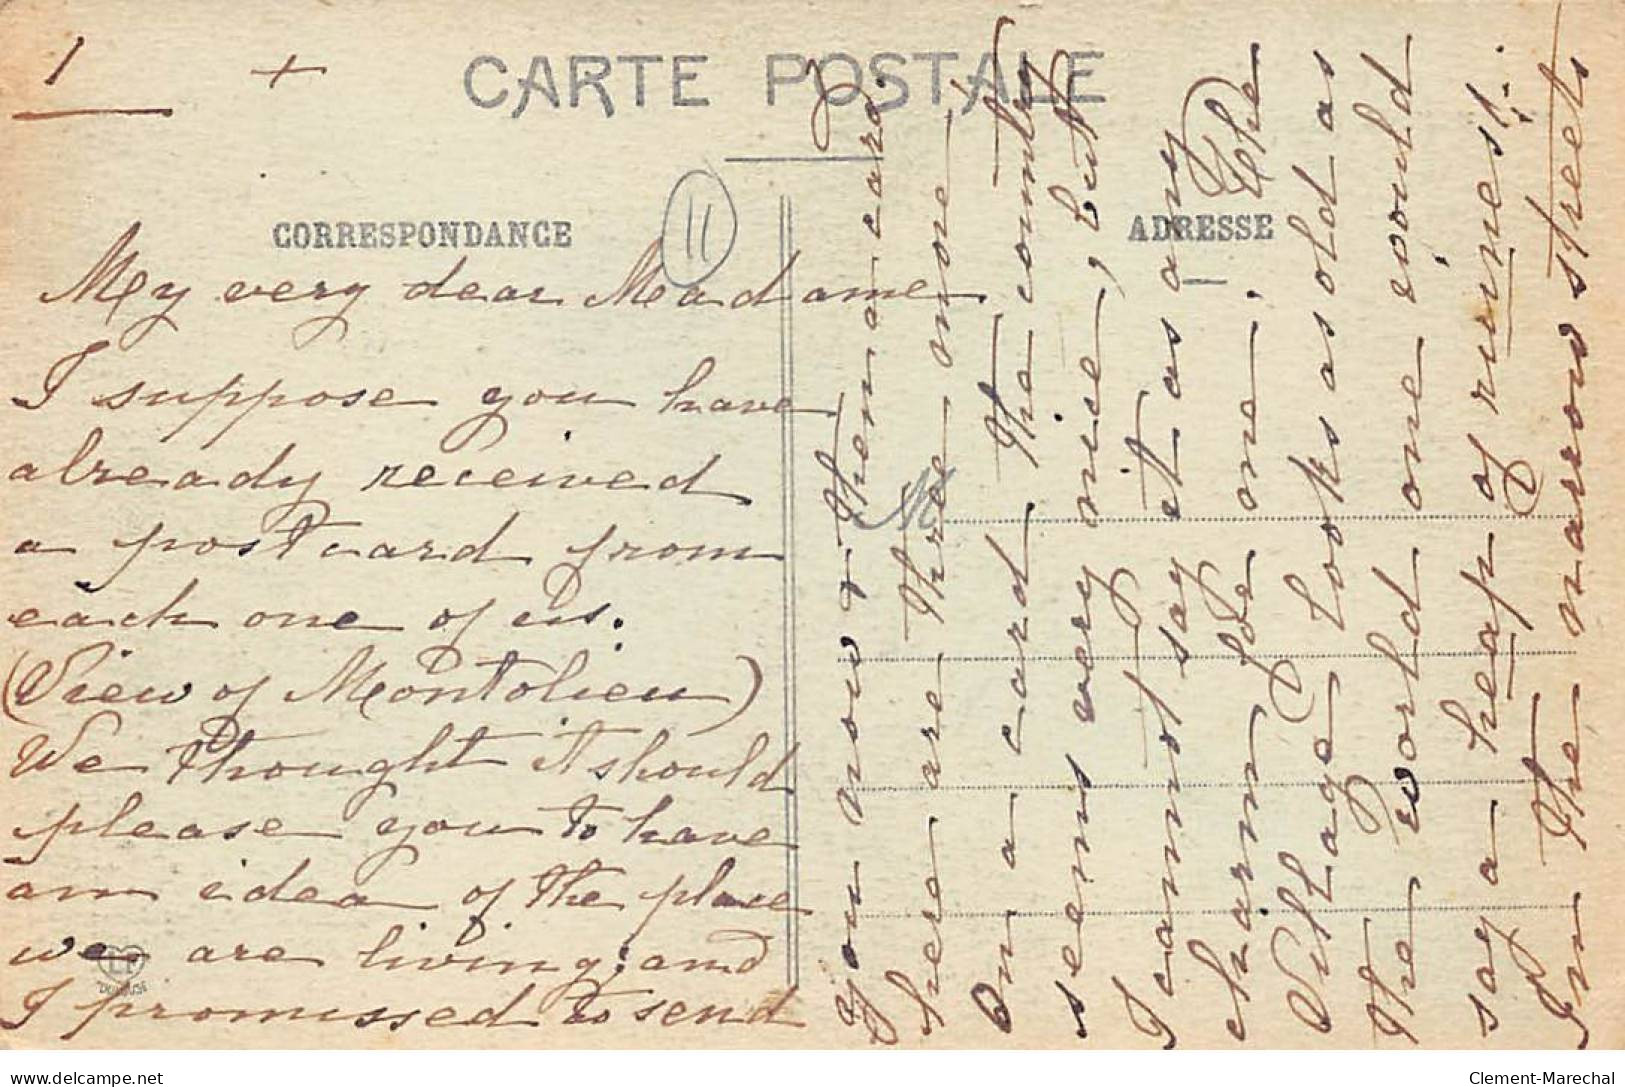 1
+
CARTE POSTALE
11
CORRESPONDANCE
ADRESSE
My very dear Madame
I suppose you have
already received
a postcard from
each one of us.
(View of Montolieu)
We thought it should
please you to have
an idea of the place
we are living; and
I promissed to send
you now & then a card.
here are three more
On a card the country
seems very nice, but
I cannot say it as any
charm for one. The
village looks as old as
the world one would
say a heap of ruines!..
In the narrow streets
M
LT
TOULOUSE
delcampe.net
Clement-Marechal